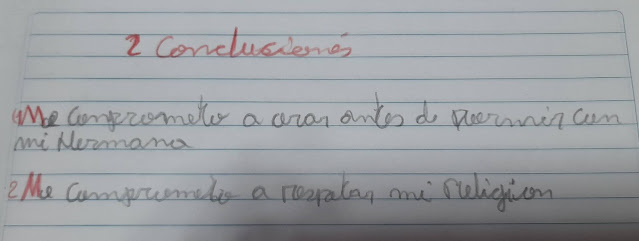 2 Conclusionés
1 Me comprometo a orar antes de Dormir con
mi Hermana
2 Me comprometo a respetar mi religion